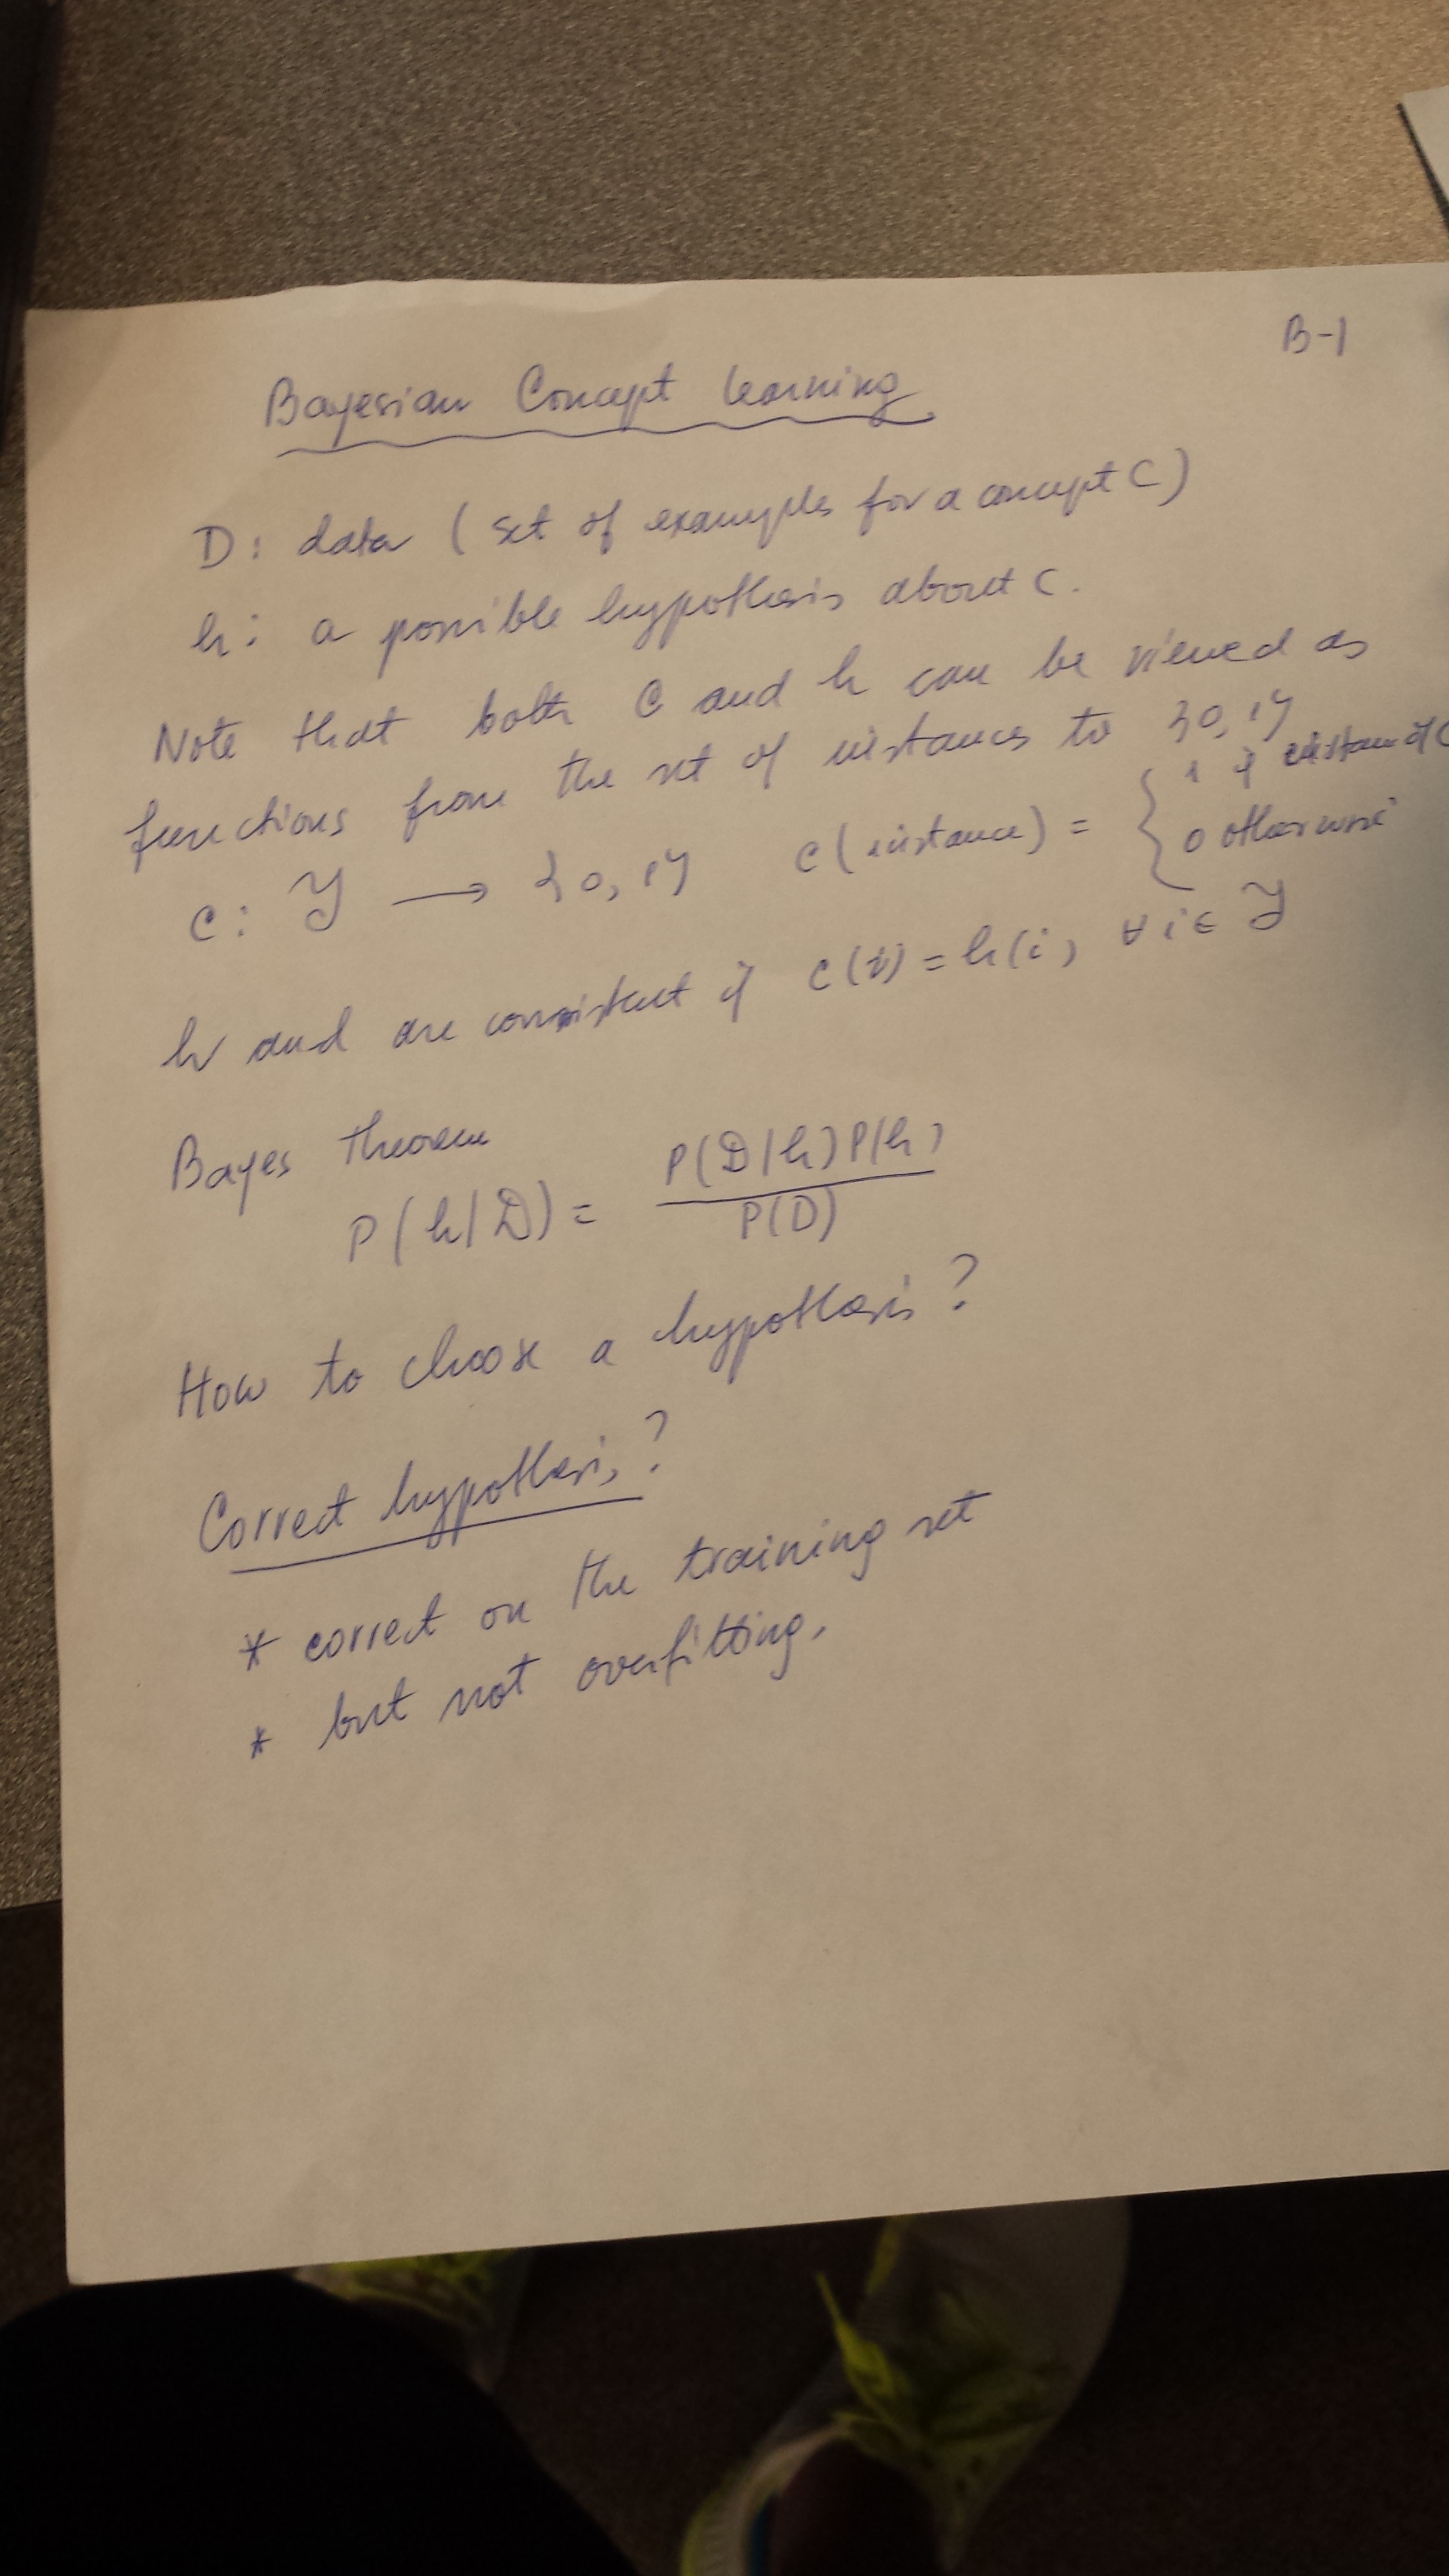 B-1
Bayesian Concept learning
D: data (set of examples for a concept C)
h: a possible hypothesis about C.
Note that both C and h can be viewed as
functions from the set of instances to {0,1}
C: ℐ → {0,1} C(instance) = { 1 if instance of C
0 otherwise
h and are consistent if C(i) = h(i), ∀ i ∈ ℐ
Bayes theorem
P(h|D) = P(D|h)P(h) / P(D)
How to choose a hypothesis?
Correct hypothesis?
* correct on the training set
* but not overfitting.